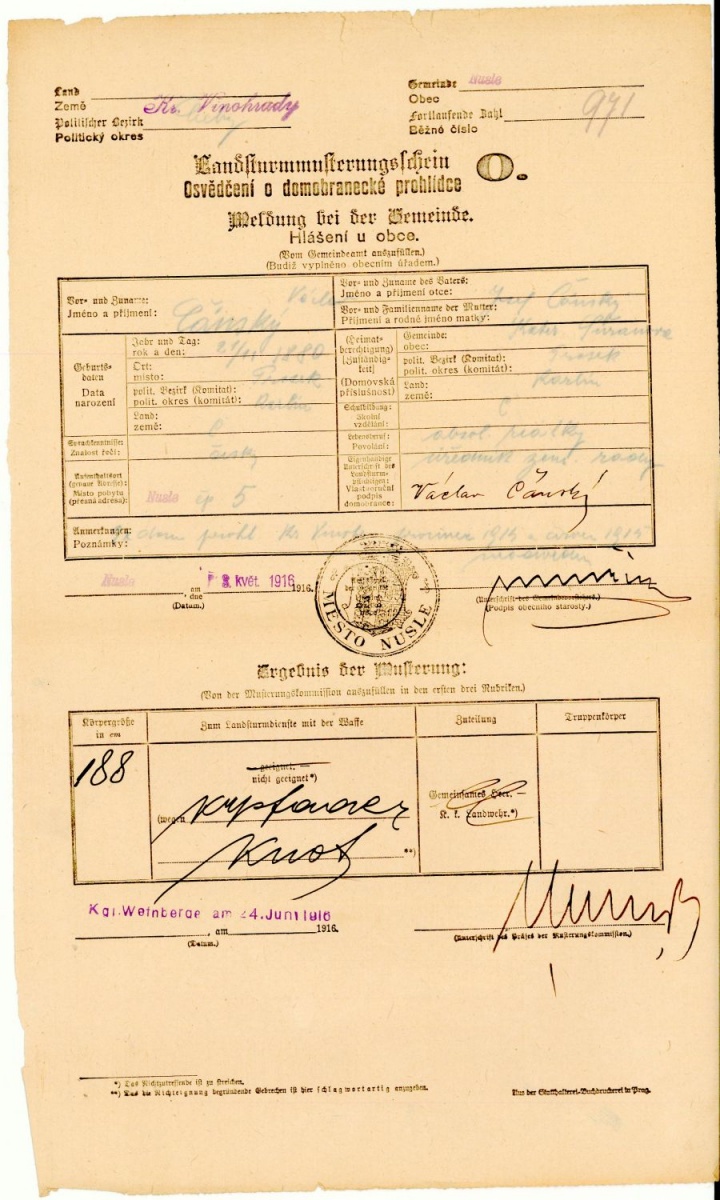 Land
Země
Kr. Vinohrady
Politischer Bezirk
Politický okres
Gemeinde Nusle
Obec
Fortlaufende Zahl
Běžné číslo 971
Landsturmmusterungsschein O.
Osvědčení o domobranecké prohlídce
Meldung bei der Gemeinde.
Hlášení u obce.
(Vom Gemeindeamt auszufüllen.)
(Budiž vyplněno obecním úřadem.)
Vor- und Zuname: Václav
Jméno a příjmení: Čánský
Vor- und Zuname des Vaters:
Jméno a příjmení otce: Josef Čánský
Vor- und Familienname der Mutter:
Příjmení a rodné jméno matky:
Geburtsdaten
Data narození
Jahr und Tag:
rok a den: 1880
Ort:
místo: Prosek
polit. Bezirk (Komitat):
polit. okres (komitát): Karlín
Land:
země: Č
(Heimatberechtigung) (Zuständigkeit)
(Domovská příslušnost)
Gemeinde:
obec: Prosek
polit. Bezirk (Komitat):
polit. okres (komitát): Karlín
Land:
země: Č
Sprachkenntnisse:
Znalost řeči: česky
Schulbildung:
Školní vzdělání: absol. reálky
Lebensberuf:
Povolání: úředník zem. rady
Aufenthaltsort (genaue Adresse):
Místo pobytu (přesná adresa): Nusle čp 5
Eigenhändige Unterschrift des Landsturmpflichtigen:
Vlastnoruční podpis domobrance: Václav Čánský
Anmerkungen:
Poznámky: dom. prohl. Kr. Vinohr. 1915 a 1915
Nusle, am / dne 3. květ. 1916 1916.
(Datum.)
MĚSTO NUSLE
(Unterschrift des Gemeindevorstehers.)
(Podpis obecního starosty.)
Ergebnis der Musterung:
(Von der Musterungskommission auszufüllen in den ersten drei Rubriken.)
Körpergröße in cm
Zum Landsturmdienste mit der Waffe
Zuteilung
Truppenkörper
188
geeignet. —
nicht geeignet*)
(wegen
**)
Gemeinsames Heer. —
K. k. Landwehr.*)
Kgl. Weinberge am 24. Juni 1916
, am 1916.
(Datum.)
(Unterschrift des Präses der Musterungskommission.)
*) Das Nichtzutreffende ist zu streichen.
**) Das die Nichteignung begründende Gebrechen ist hier schlagwortartig anzugeben.
Aus der Statthalterei-Buchdruckerei in Prag.